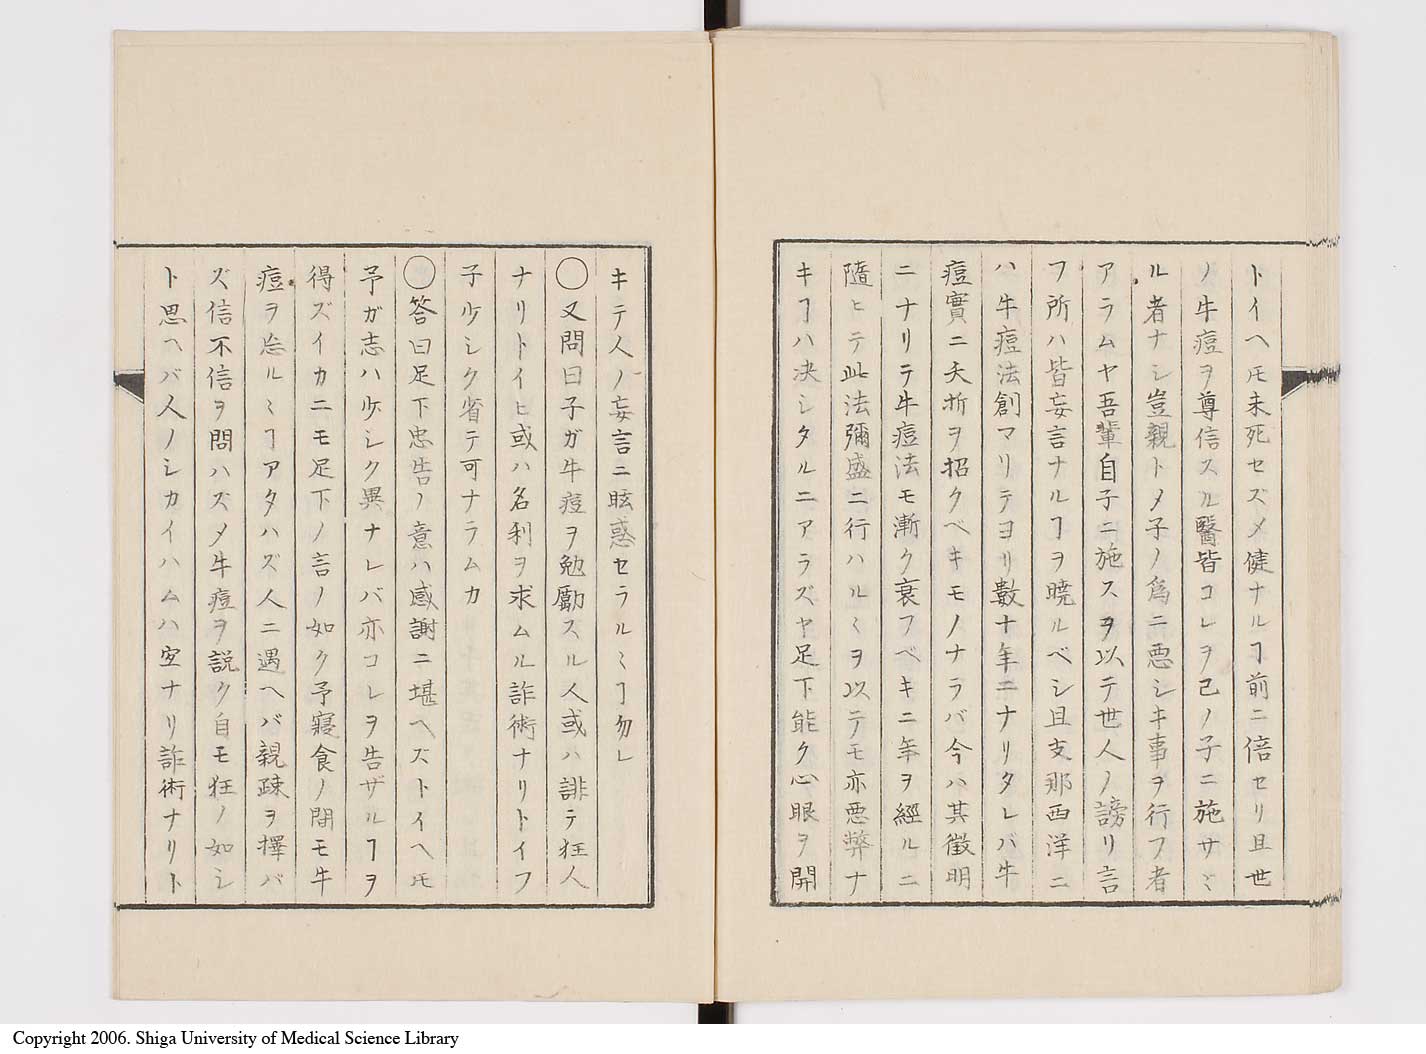 トイヘ𪜈未死セズメ健ナルヿ前ニ倍セリ且世
ノ牛痘ヲ尊信スル醫皆コレヲ己ノ子ニ施サヾ
ル者ナシ豈親トメ子ノ爲ニ悪シキ事ヲ行フ者
アラムヤ吾輩自子ニ施スヲ以テ世人ノ謗リ言
フ所ハ皆妄言ナルヿヲ曉ルベシ且支那西洋ニ
ハ牛痘法創マリテヨリ數十年ニナリタレバ牛
痘實ニ夭折ヲ招クベキモノナラバ今ハ其徴明
ニナリテ牛痘法モ漸ク衰フベキニ年ヲ經ルニ
隨ヒテ此法彌盛ニ行ハルヽヲ以テモ亦悪弊ナ
キヿハ决シタルニアラズヤ足下能ク心眼ヲ開
キテ人ノ妄言ニ眩惑セラルヽヿ勿レ
○又問曰子ガ牛痘ヲ勉勵スル人或ハ誹テ狂人
ナリトイヒ或ハ名利ヲ求ムル詐術ナリトイフ
子少シク省テ可ナラムカ
○答曰足下忠告ノ意ハ感謝ニ堪ヘズトイヘ𪜈
予ガ志ハ少シク異ナレバ亦コレヲ告ザルヿヲ
得ズイカニモ足下ノ言ノ如ク予寢食ノ間モ牛
痘ヲ忘ルヽヿアタハズ人ニ遇ヘバ親疎ヲ擇バ
ズ信不信ヲ問ハズメ牛痘ヲ説ク自モ狂ノ如シ
ト思ヘバ人ノシカイハムハ空ナリ詐術ナリト
Copyright 2006. Shiga University of Medical Science Library